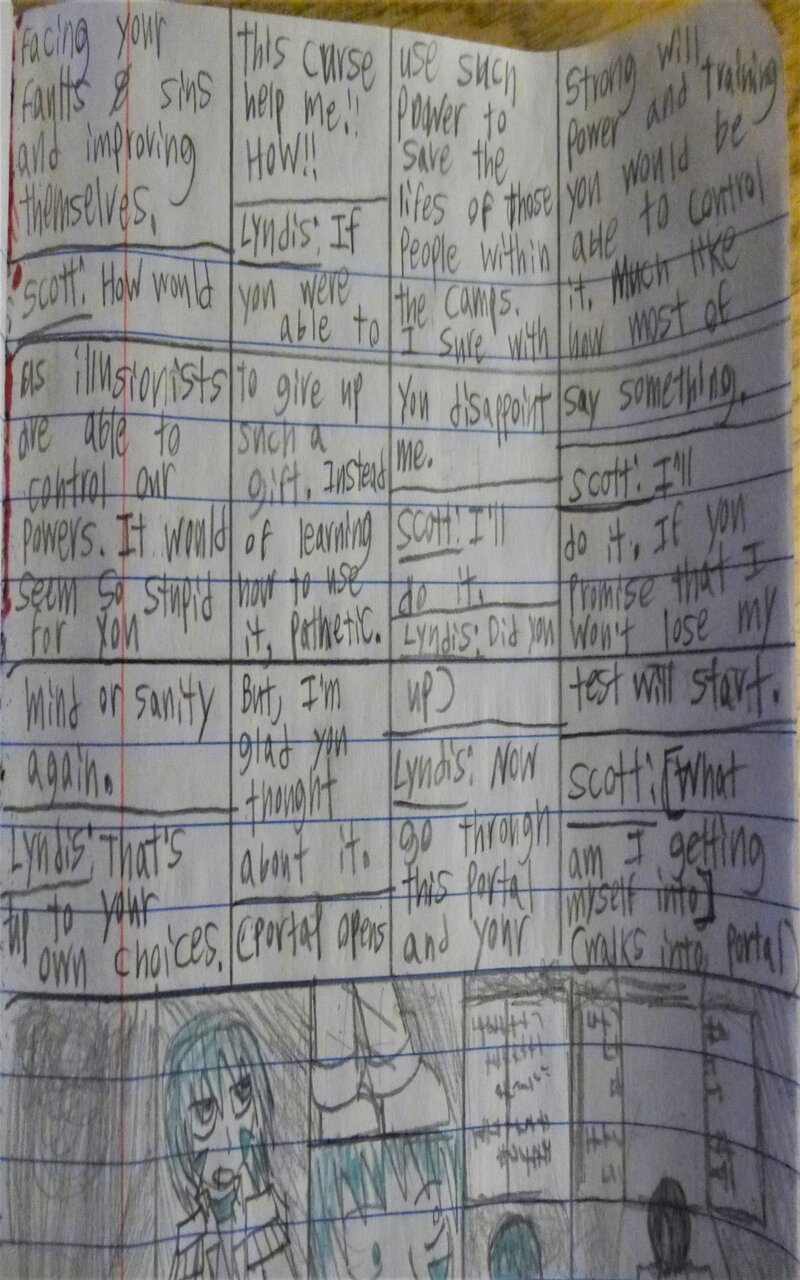 Facing your
faults & sins
and improving
themselves.
Scott: How would
this curse
help me!!
HOW!!
Lyndis: If
you were
able to
use such
power to
save the
lifes of those
people within
the camps.
I sure with
strong will
power and training
you would be
able to control
it. Much like
how most of
us illusionists
are able to
control our
powers. It would
seem so stupid
for you
to give up
such a
gift. Instead
of learning
how to use
it, Pathetic.
You disappoint
me.
Scott: I'll
do it.
Lyndis: Did you
say something.
Scott: I'll
do it. If you
promise that I
won't lose my
mind or sanity
again.
Lyndis: That's
up to your
own choices.
But, I'm
glad you
thought
about it.
(Portal opens
up)
Lyndis: Now
go through
this portal
and your
test will start.
Scott: [What
am I getting
myself into]
(walks into portal)